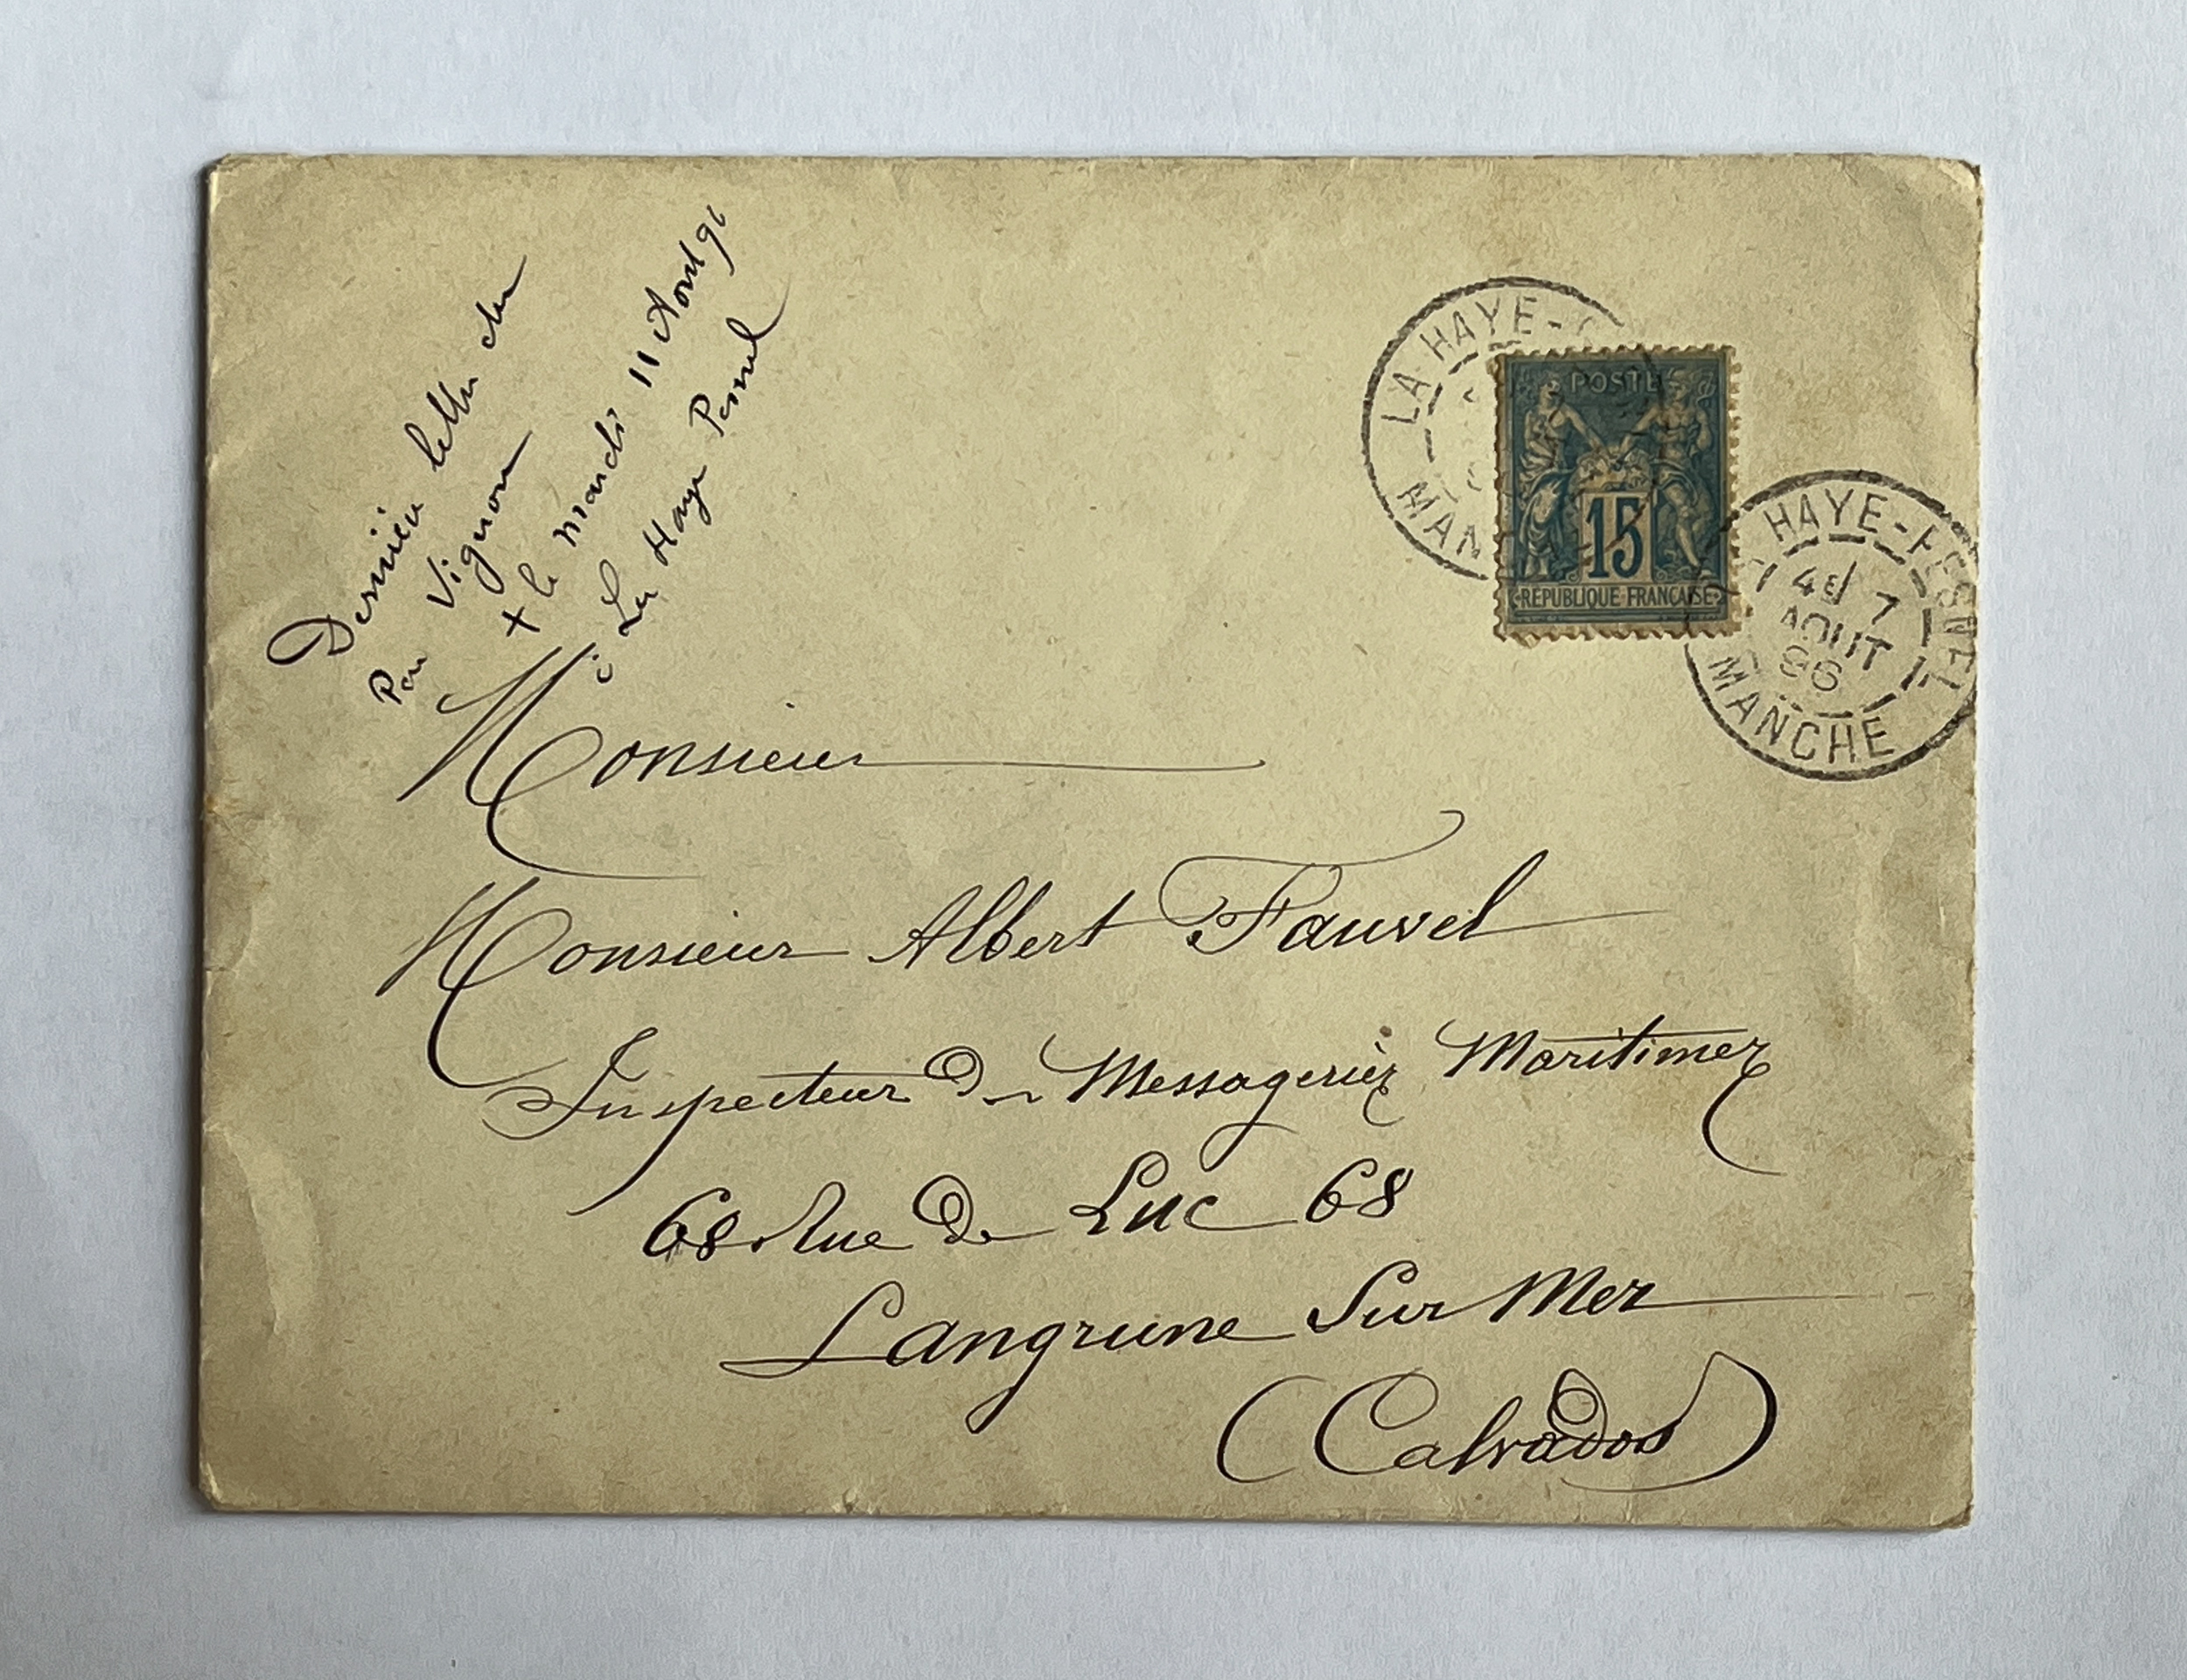 Dernière lettre du
Pau Vignon
+ le mardi 11 Aout 96
à La Haye Pesnel
LA HAYE-
MAN
POSTE
15
RÉPUBLIQUE FRANÇAISE
HAYE-PESNEL
4E 7
AOUT
96
MANCHE
Monsieur
Monsieur Albert Fauvel
Inspecteur des Messageries Maritimes
68 Rue de Luc 68
Langrune Sur Mer
(Calvados)